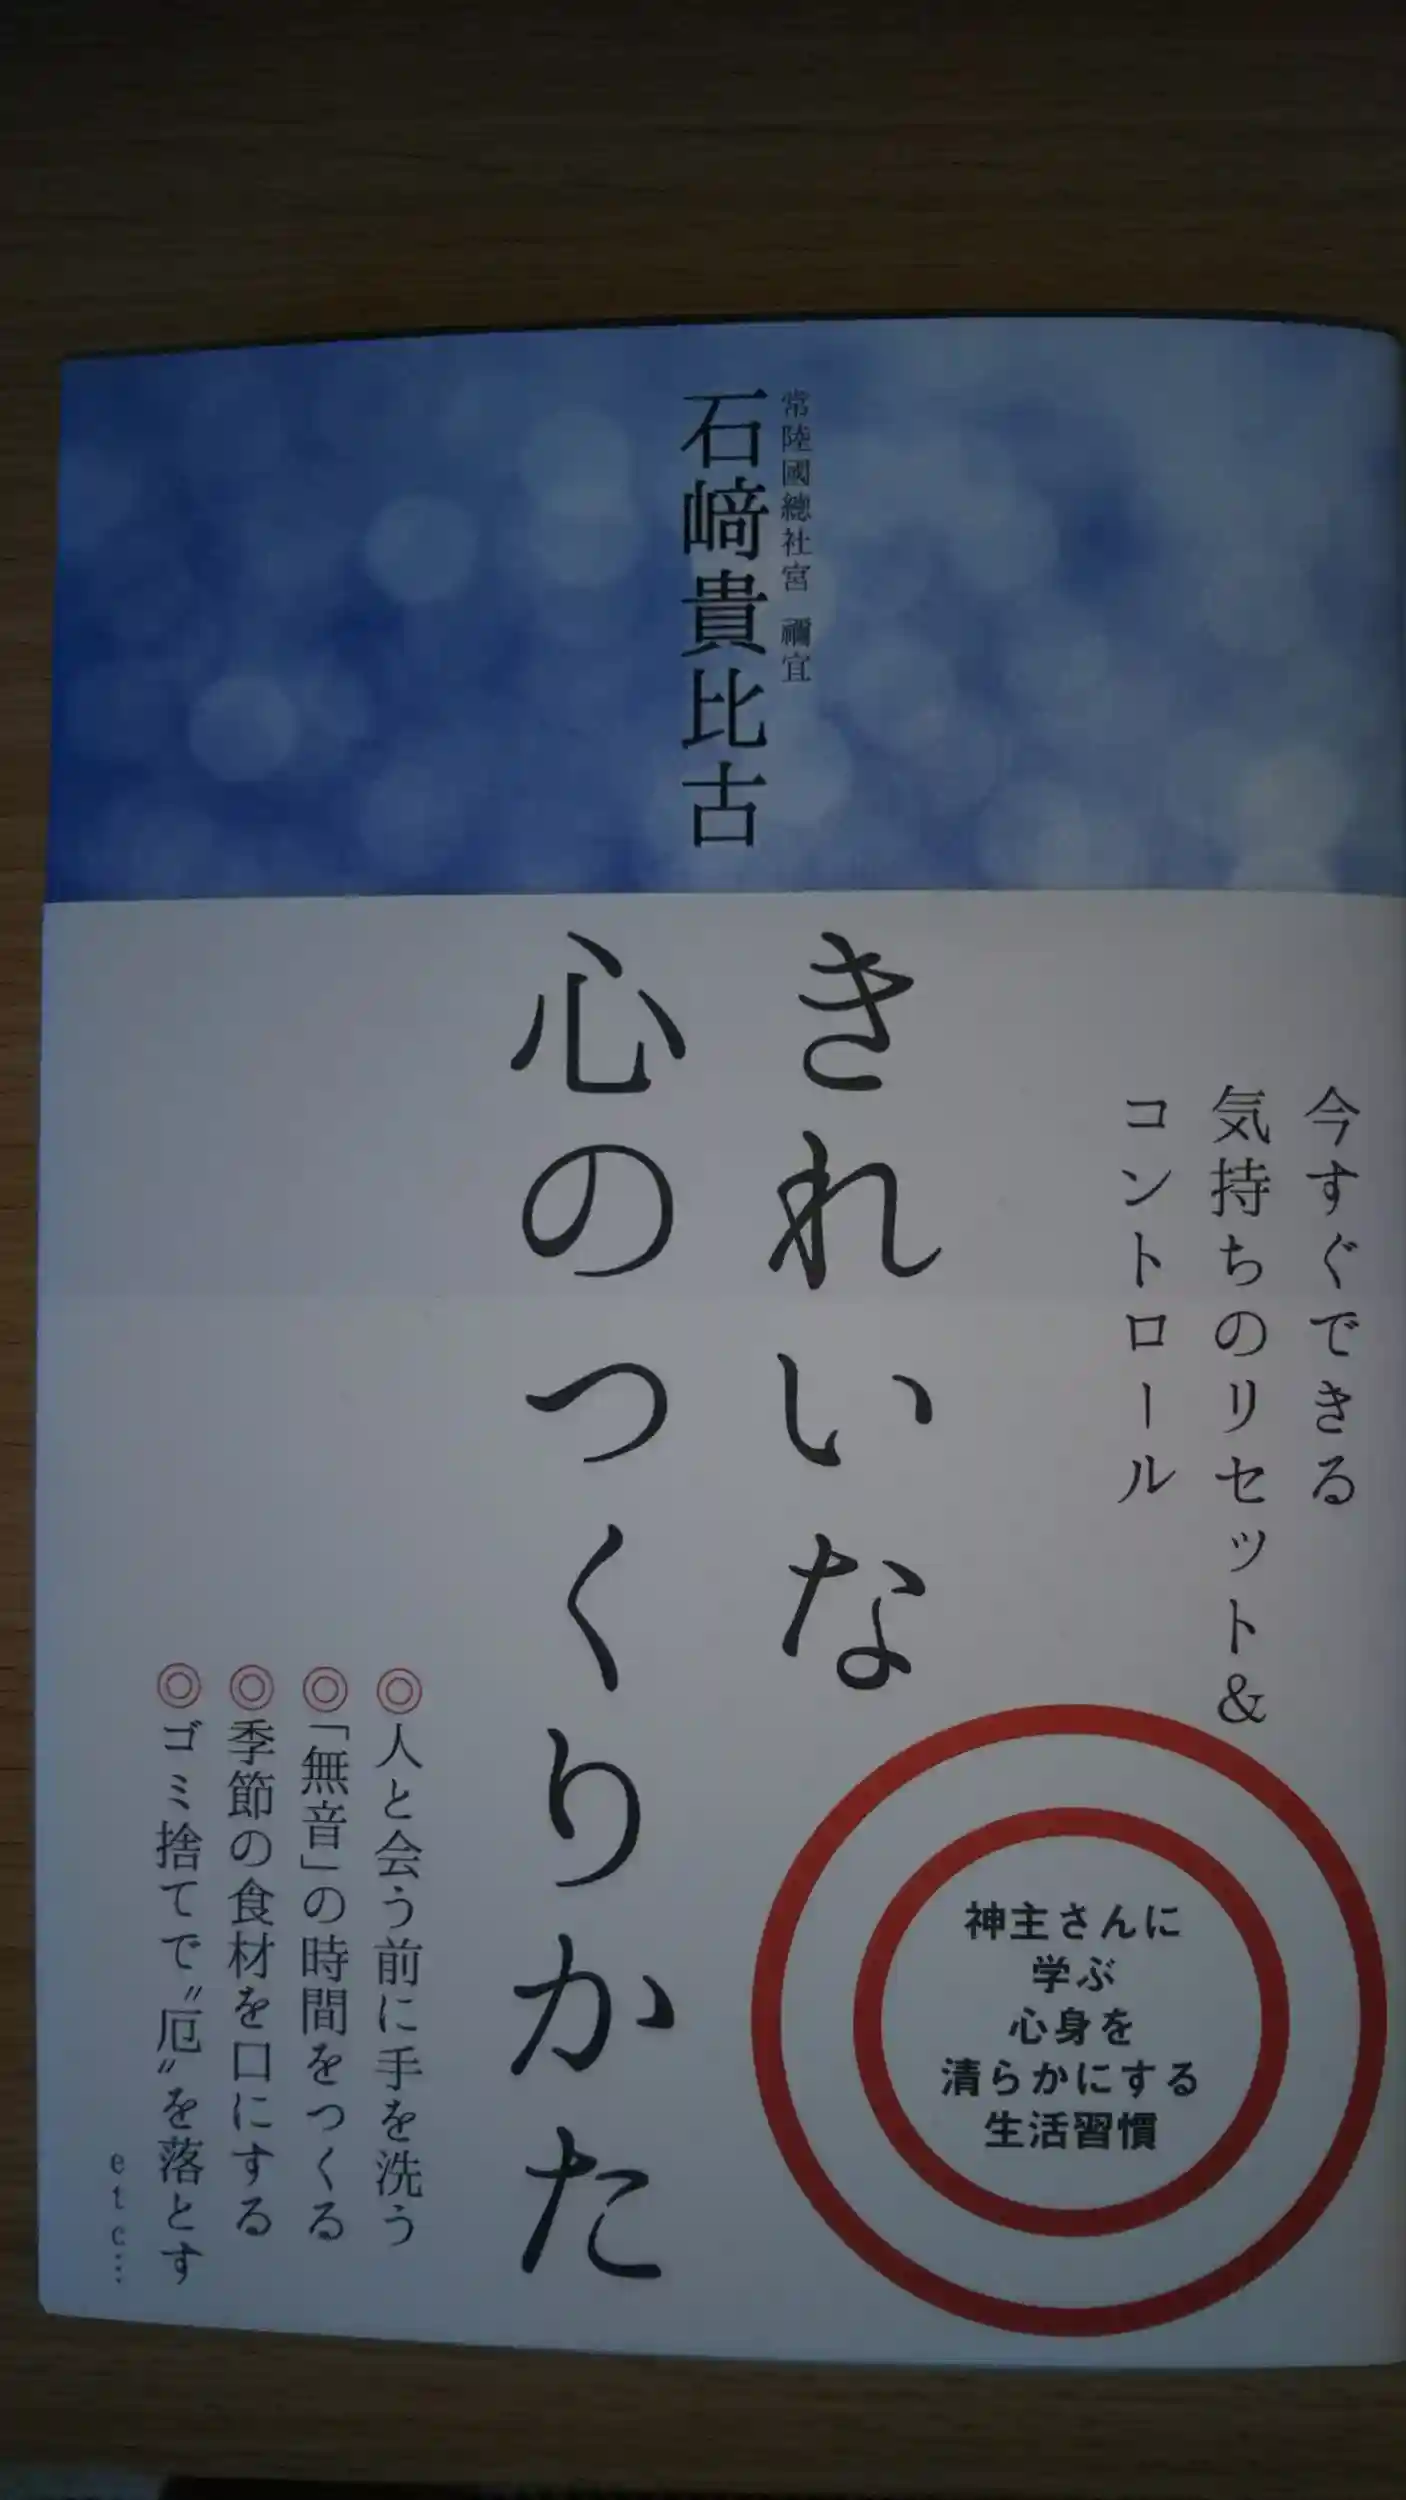 今すぐできる
気持ちのリセット&
コントロール
常陸國總社宮 禰宜
石﨑貴比古
きれいな
心のつくりかた
神主さんに
学ぶ
心身を
清らかにする
生活習慣
◎人と会う前に手を洗う
◎「無音」の時間をつくる
◎季節の食材を口にする
◎ゴミ捨てで〝厄〟を落とす
etc…